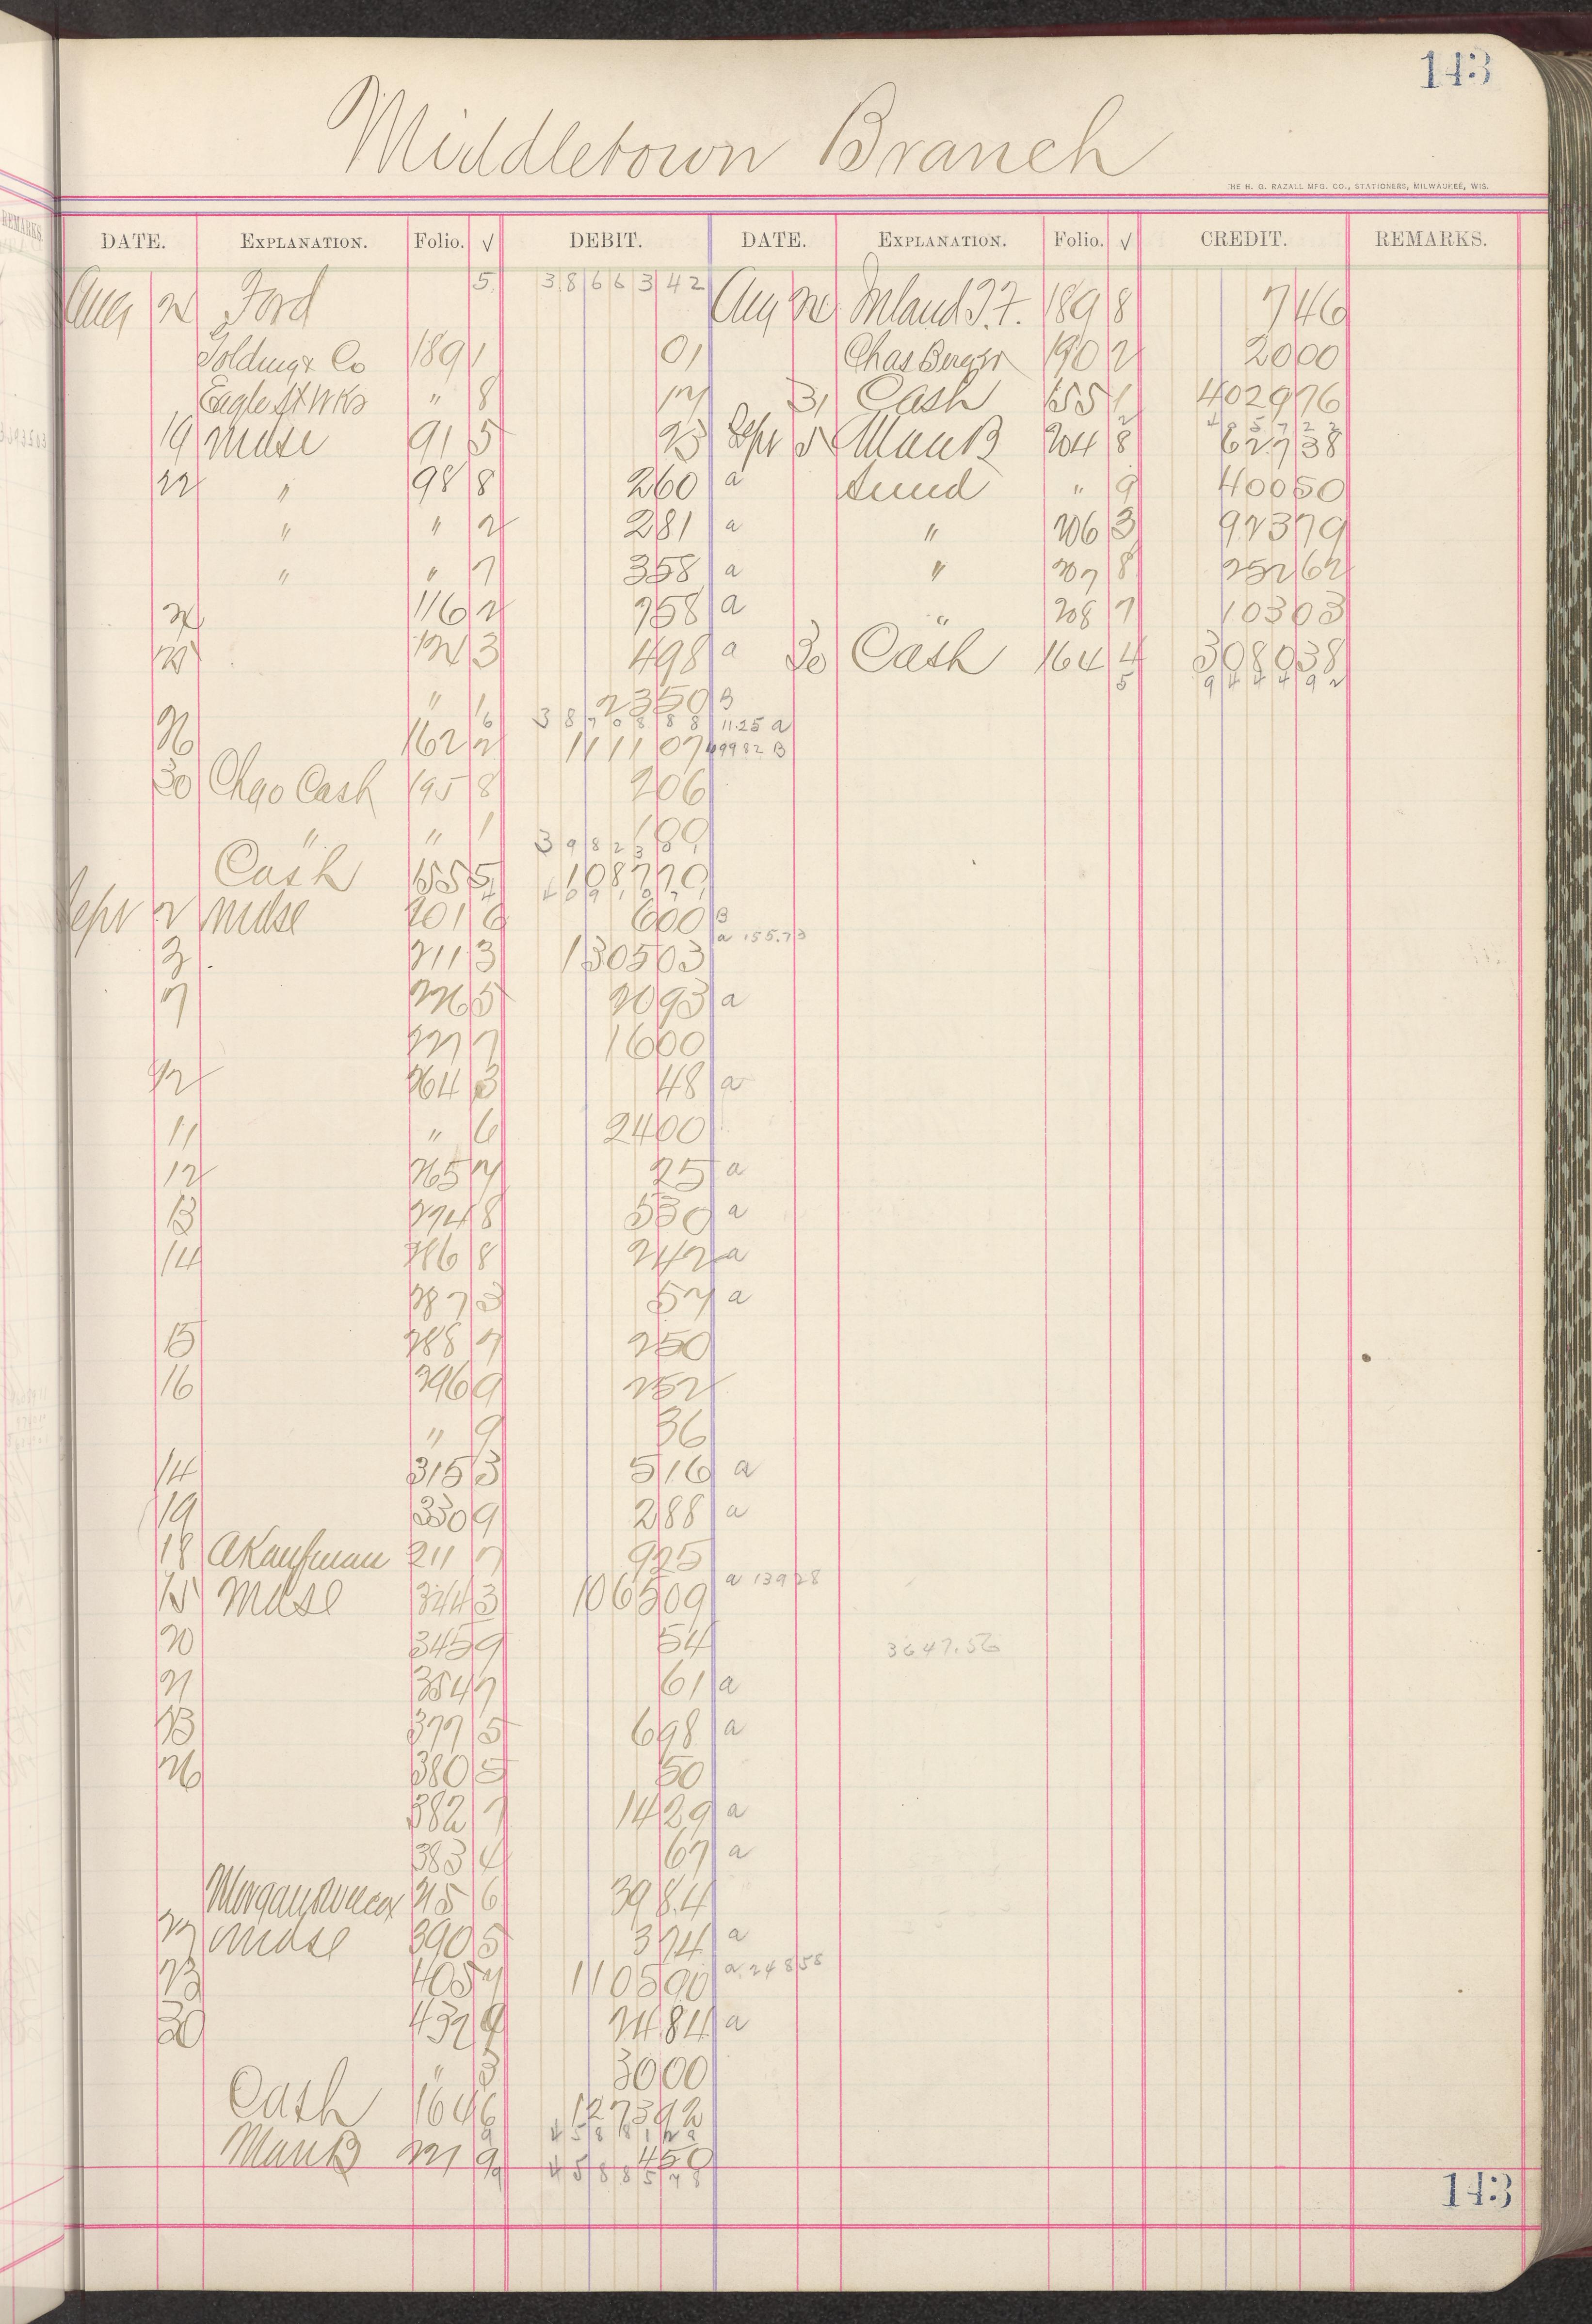 143
Middletown Branch
THE H. G. RAZALL MFG. CO., STATIONERS, MILWAUKEE, WIS.
DATE. EXPLANATION. Folio. √ DEBIT. DATE. EXPLANATION. Folio. √ CREDIT. REMARKS.
Aug Ford 5 3866342 Aug Inland 189 8 746
Golding & Co 189 1 01 Chas Berger 190 2 2000
Eagle " 8 31 Cash 155 1 402976
19 Mdse 91 5 23 Sept 5 Man B 204 8 62738
22 " 98 8 260 a Sund " 9 40050
" " 2 281 a " 206 3 92379
" " 7 358 a " 207 8 25262
116 2 758 a " 208 7 10303
3 498 a 30 Cash 164 4 308038
" 2350 B 5 944492
3870888 11.25 a
26 162 2 111107 B
30 Chgo Cash 195 8 206
" " 1 189
Cash 155 5 108770
Sept 2 Mdse 201 6 600 B
a 155.73
3 211 3 130503
7 226 5 2093 a
227 7 1600
12 264 3 48 a
11 " 6 2400
12 265 7 25 a
13 274 8 530 a
14 286 8 242 a
287 3 57 a
15 288 7 250
16 296 9 252
" 9 36
14 315 3 516 a
19 330 9 288 a
18 A Kaufman 211 7 925
25 Mdse 344 3 106509 a 13928
20 345 9 54 3647.56
21 354 7 61 a
23 377 5 698 a
26 380 5 50
382 7 1429 a
383 4 67 a
Morgan 215 6 3984
27 Mdse 390 5 374 a
23 405 7 110590 a 24858
30 432 9 2484 a
" 3 3000
Cash 164 6 127392
Man B 221 9 450
4588578
143